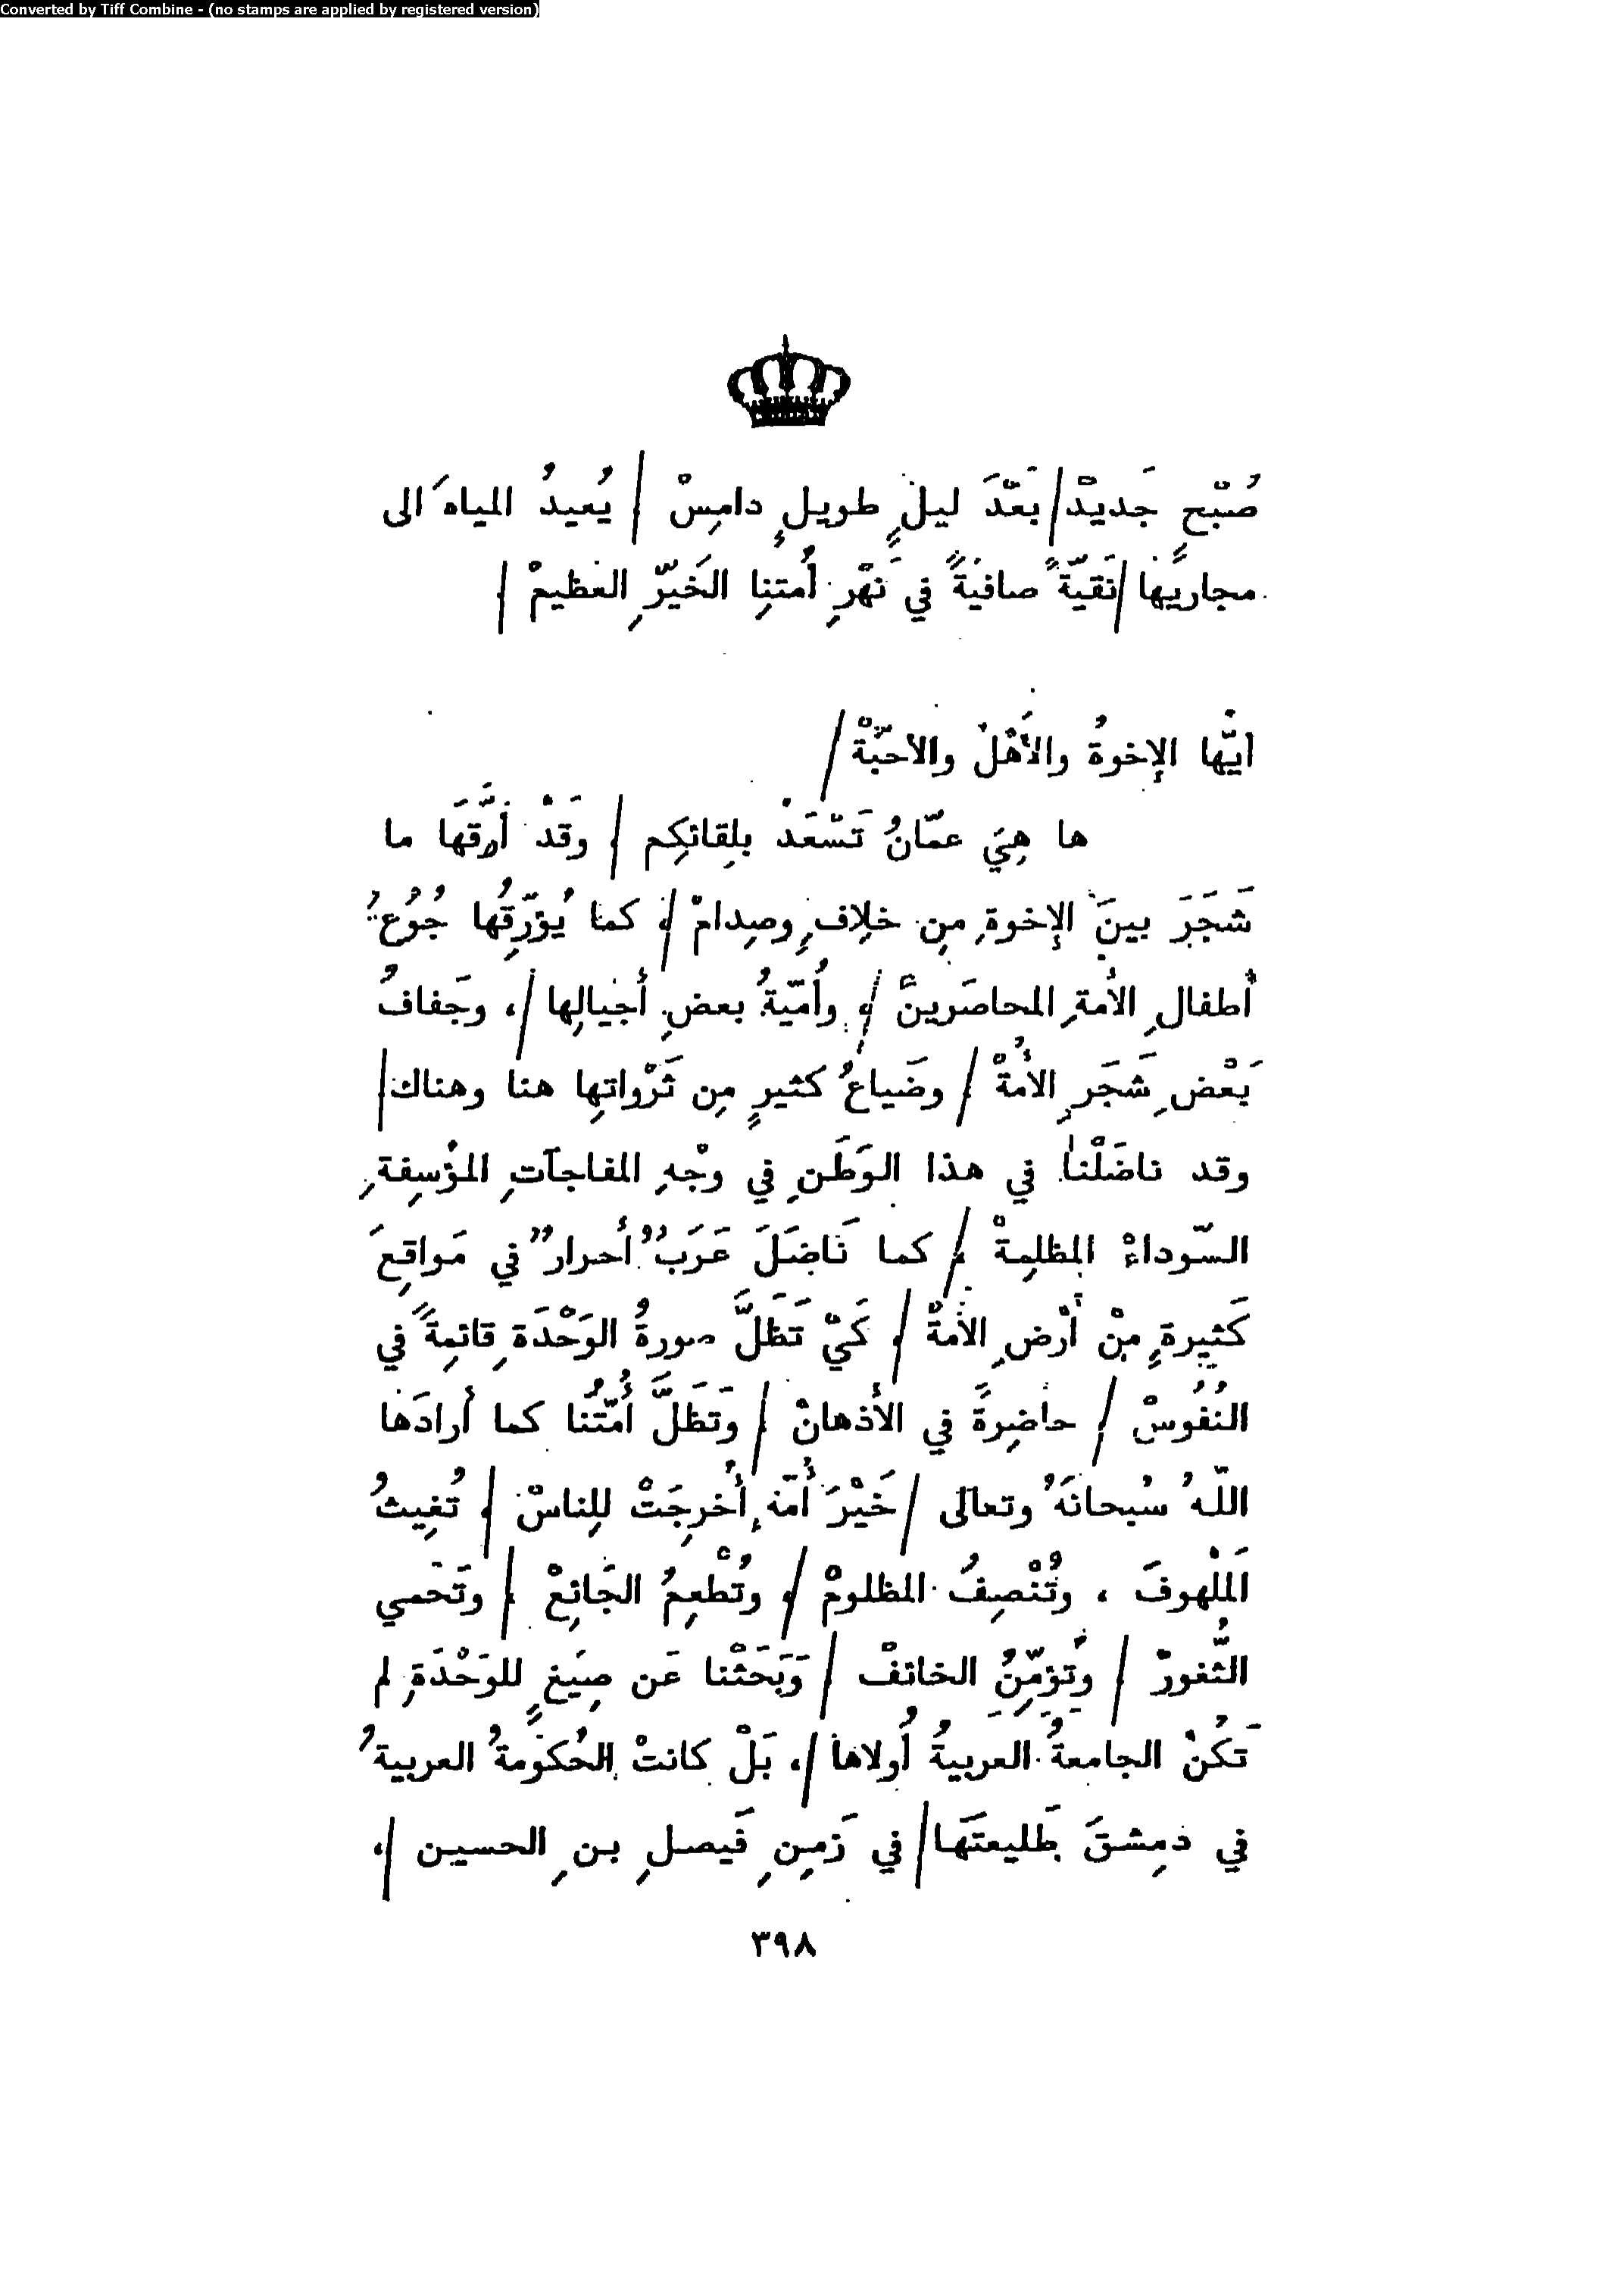 Converted by Tiff Combine - (no stamps are applied by registered version)
صُبْحٍ جَديدْ / بَعْدَ ليلٍ طويلٍ دامِسْ / يُعيدُ المياهَ الى
مجاريها / نَقيّةً صافيةً في نَهْرِ أُمتنِا الخَيّرِ العظيمْ /
ايُّها الإخوةُ والأَهْلُ والأحبّةْ /
ها هِيَ عمّانُ تَسْعَدُ بلِقائكِم / وقَدْ أَرَّقَها ما
شَجَرَ بينَ الإخوةِ مِن خلافٍ وصِدامْ ، / كما يُؤرِّقُها جُوعُ
أطفالِ الأمةِ المحاصَرينْ ، / وأُميّةُ بعضِ أجيالِها / ، وجَفافُ
بَعْضِ شَجَرِ الأُمةْ / وضَياعُ كثيرٍ مِن ثَرْواتهِا هنا وهناك /
وقد ناضَلْنا في هذا الوَطَنِ في وجْهِ المفاجآتِ المؤسِفةِ
السّوداءْ المظلِمةْ / كما نَاضَلَ عَرَبٌ أحرارٌ في مَواقِعَ
كَثيرةٍ مِنْ أرْضِ الأمةْ / ، كَيْ تَظَلَّ صورةُ الوَحْدَةِ قائمِةً في
النُفُوسْ / حاضِرةً في الأذهانْ / وتَظَلَّ أُمّتُنا كما أرادَها
اللّهُ سُبحانَهُ وتعالَى / خَيْرَ أُمّةٍ أُخرِجَتْ للِناسْ / ، تُغيثُ
المَلْهوفَ ، وتُنْصِفُ المظلومْ / ، وتُطْعِمُ الجَائِعْ / وتَحْمي
الثُّغورْ / وتُؤمِّنُ الخائفْ / وَبَحَثْنا عَن صِيَغٍ للوَحْدَةِ لم
تَكُنْ الجامعةُ العربيةُ أُولاها / ، بَلْ كانتْ الحُكومةُ العربيةُ
في دمِشقَ طَليعتَها / في زَمِنِ فَيصلِ بنِ الحسين / ،
٣٩٨